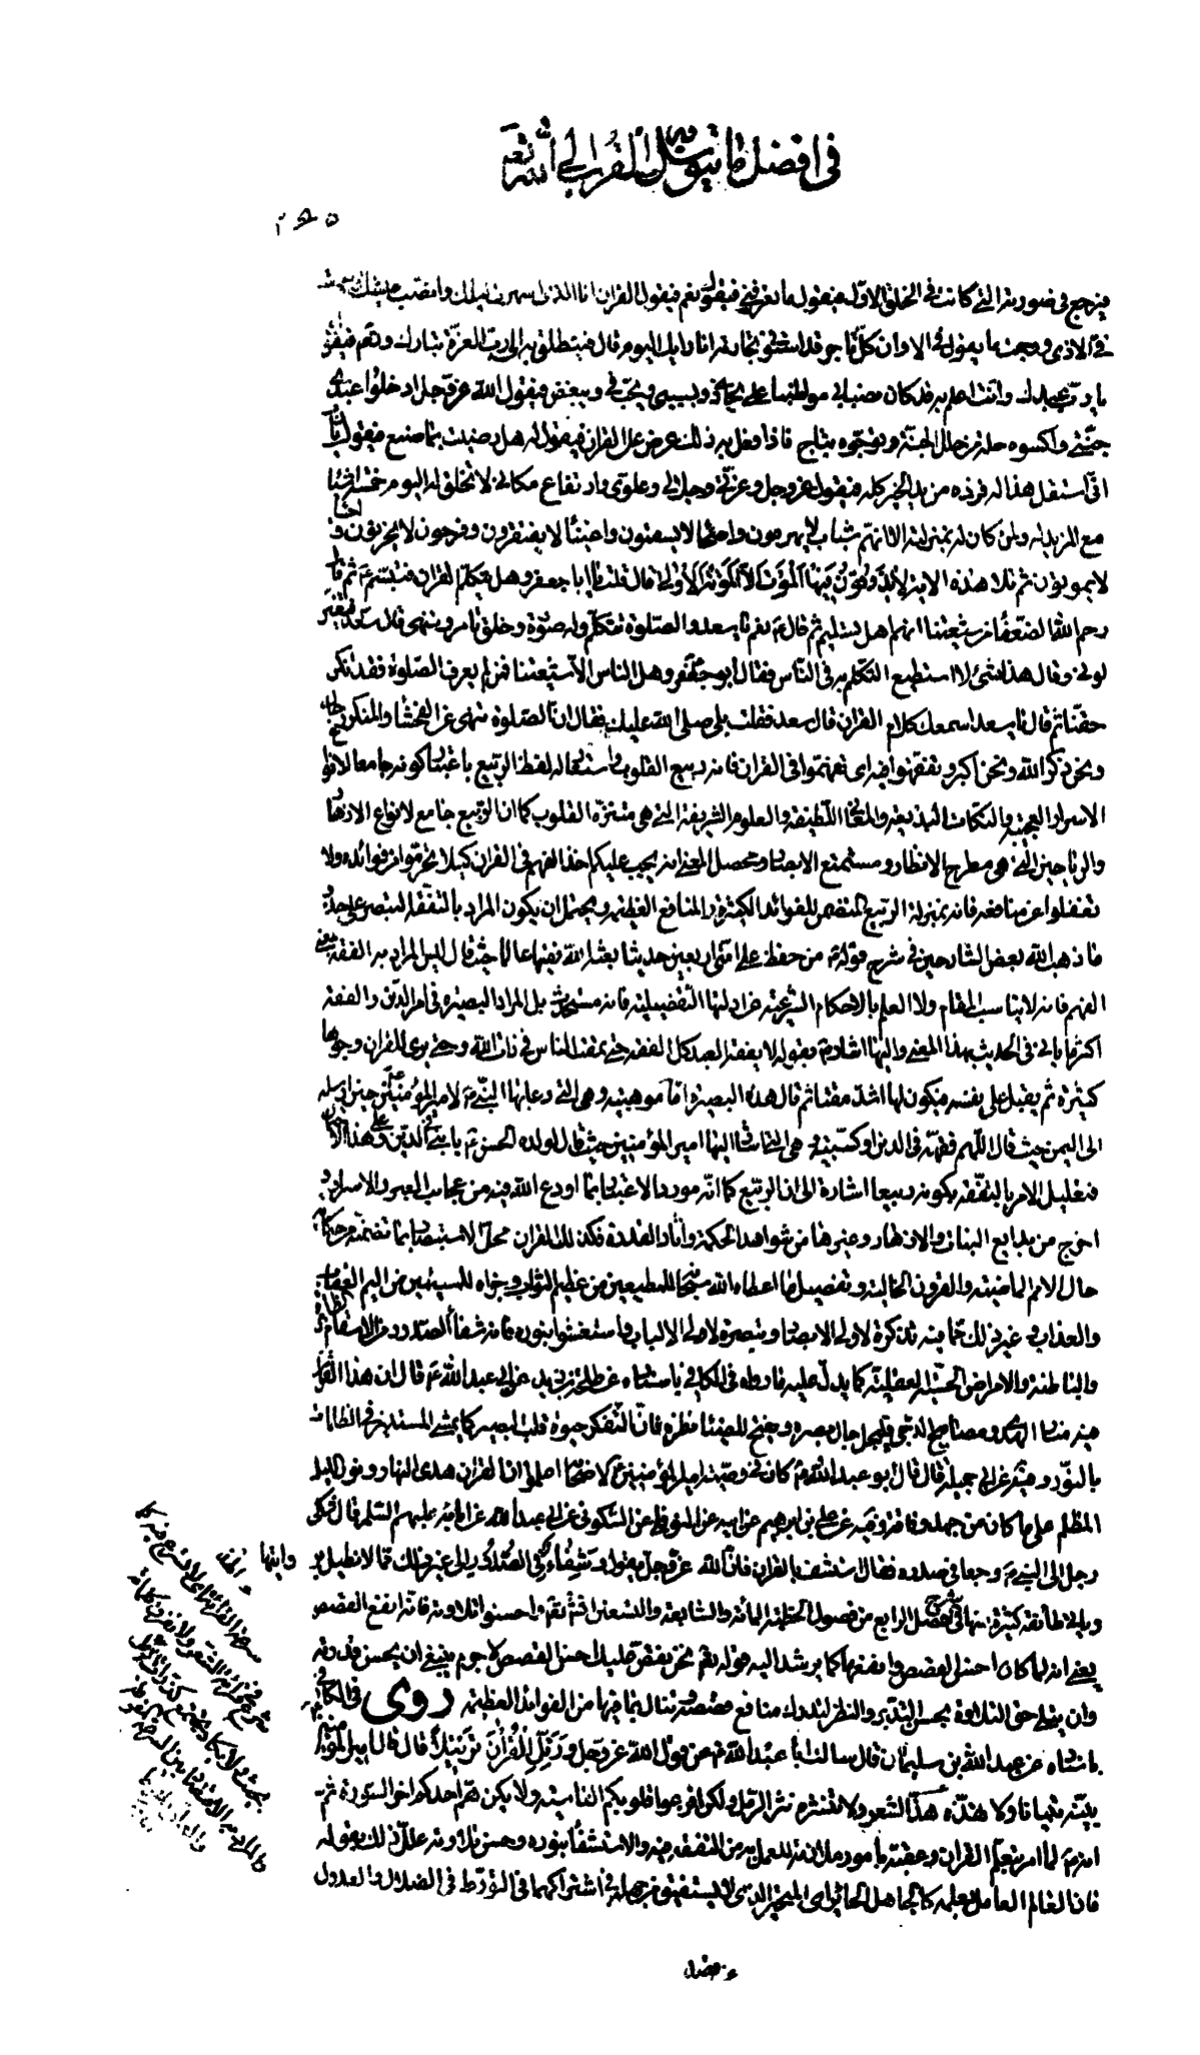 في افضل ما يتوسل به القرب الى الله تعالى
فيرجع في صورته التي كانت في الخلق الاول فيقول ما تعرفني فيقول نعم فيقول القران انا الذي اسهرت ليلك وانصبت عيشك
في الاذى ورجمت بالقول في الا وان كل تاجر قد استوفى تجارته وانا ورائك اليوم قال فينطلق به الى رب العزة تبارك وتعالى فيقول
يا رب عبدك وانت اعلم به قد كان نصبا بي مواظبا علي يعادي بسببي ويحب في ويبغض فيقول الله عز وجل ادخلوا عبدي
جنتي واكسوه حلة من حلل الجنة وتوجوه بتاج فاذا فعل به ذلك عرض على القران فيقول له هل رضيت بما صنع فيقول يا رب
اني استقل هذا له فزده مزيد الخير كله فيقول عز وجل وعزتي وجلالي وعلوي وارتفاع مكاني لانحلن له اليوم خمسة اشيا
مع المزيد له ولمن كان له بمنزلته الا انهم شباب لا يهرمون واصحا لا يسقمون واغنيا لا يفتقرون وفرحون لا يحزنون واحيا
لا يموتون ثم تلا هذه الاية لا يذوقون فيها الموت الا الموتة الاولى قال قلت يا ابا جعفر وهل يتكلم القران فتبسم ثم قال
رحم الله الضعفا من شيعتنا انهم اهل تسليم ثم قال نعم يا سعد والصلوة تتكلم وله صورة وخلق تامر وتنهى قال سعد فتغير
لوني وقال هذا شئ لا استطيع التكلم به في الناس فقال ابو جعفر وهل الناس الا شيعتنا فمن لم يعرف الصلوة فقد انكر
حقنا ثم قال يا سعد اسمعك كلام القران قال سعد فقلت بلى صلى الله عليك فقال ان الصلوة تنهى عن الفحشا والمنكر
ونحن ذكر الله ونحن اكبر وتفقهوا فيه اى تفهموا في القران فانه ربيع القلوب استعاله لفظ الربيع باعتبار كونه جامعا لانواع
الاسرار العجيبة والنكات البديعة والمعاني اللطيفة والعلوم الشريفة التي هي متنزه القلوب كما ان الربيع جامع لانواع الازهار
والرياحين التي هي مطرح الانظار ومستمتع الابصار ومحصل المعنى انه يجب عليكم اخذ الفهم في القران كيلا تحرموا من فوائده ولا
تغفلوا عن منافعه فانه بمنزلة الربيع المتضمن للفوائد الكثيرة والمنافع العظيمة ويحتمل ان يكون المراد بالتفقه التبصر على حد
ما ذهب اليه بعض الشارحين في شرح قوله من حفظ على امتي اربعين حديثا بعثه الله فقيها عالما حيث قال ليس المراد به الفقه بمعنى
الفهم فانه لا يناسب المقام ولا العلم بالاحكام الشرعية عن ادلتها التفصيلية فانه مستحدث بل المراد البصيرة في امر الدين والفقه
اكثر ما ياتي في الحديث بهذا المعنى واليها اشار بقوله لا يفقه العبد كل الفقه حتى يمقت الناس في ذات الله وحتى يرى للقران وجوها
كثيرة ثم يقبل على نفسه فيكون لها اشد مقتا ثم قال هذه البصيرة اما موهبية وهي التي دعا بها النبي لامير المؤمنين حين ارسله
الى اليمن حيث قال اللهم فقهه في الدين او كسبية وهي التي اشار اليها امير المؤمنين حيث قال لولده الحسن يا بني الدين وعلى هذا
فتعليل الامر بالتفقه بكونه ربيعا اشارة الى ان الربيع كما انه مورد الاعتبار بما اودع الله فيه من عجايب العبر والاسرار و
اخرج من بدايع النبات والازهار وغيرها من شواهد الحكمة واثار القدرة فكذلك القران محل الاستبصار بما تضمنه من حكاية
حال الامم الماضية والقرون الخالية وتفصيل ما اعطاه الله للمطيعين من عظيم الثواب وجزاه للمسيئين من اليم العقاب
والعذاب وغير ذلك مما فيه تذكرة لاولي الابصار وتبصرة لاولي الالباب واستشفوا بنوره فانه شفا الصدور من الاسقام
والباطنة والامراض الحسية والعقلية كما يدل عليه ما رواه في الكافي باسناده عن طلحة بن زيد عن ابي عبد الله قال ان هذا القران
فيه منار الهدى ومصابيح الدجى فليجل جال بصره ويفتح للضيا نظره فان التفكر حيوة قلب البصير كما يمشي المستنير في الظلمات
بالنور وفيه عن ابي جميلة قال قال ابو عبد الله كان في وصية امير المؤمنين لاصحابه اعلموا ان القران هدى النهار ونور الليل
المظلم على ما كان من جهد وفاقة وفيه عن علي بن ابراهيم عن ابيه عن النوفلي عن السكوني عن ابي عبد الله عن ابائه عليهم السلم قال شكى
رجل الى النبي وجعا في صدره فقال استشف بالقران فان الله عز وجل يقول وشفاء لما في الصدور الى غير ذلك مما لا نطيل بروايتها
كثيرة منها في شرح الفصل الرابع من فصول الخطبة المائة والسابعة والتسعين واحسنوا تلاوته فانه انفع القصص
يعني انه لما كان احسن القصص وانفعها كما يرشد اليه قوله نحن نقص عليك احسن القصص لا جرم ينبغي ان يحسن تلاوته
وان يتلى حق التلاوة بحسن التدبر والنظر لتدرك منافع قصصه وتنال بما فيها من الفوائد العظيمة روى في الكافي
باسناده عن عبد الله بن سليمان قال سالت ابا عبد الله عن قول الله عز وجل ورتل القران ترتيلا قال قال امير المؤمنين
بينه تبيانا ولا تهذه هذ الشعر ولا تنثره نثر الرمل ولكن افزعوا قلوبكم القاسية ولا يكن هم احدكم اخر السورة ثم
انه لما امر بتعلم القران وعقبه بامور ملازمة للعمل به من التفقه فيه والاستشفا بنوره وحسن تلاوته علل ذلك بقوله
فان العالم العامل بغير علمه كالجاهل الحائر اى المتحير الذي لا يستفيق من جهله في اشتراكهما في التورط في الضلال والعدول
عن قصد